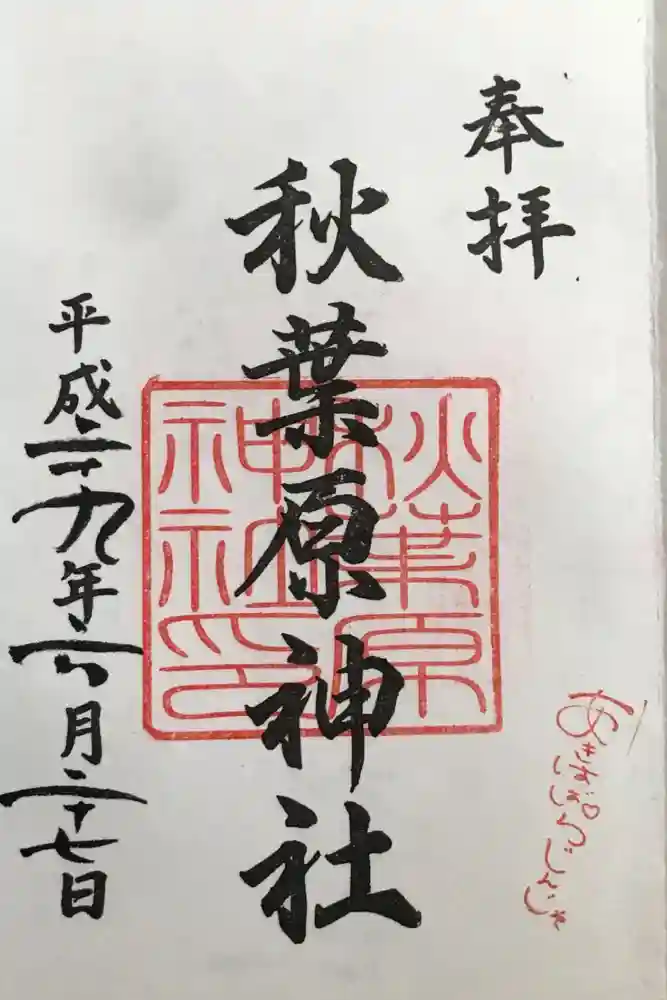 奉拝
秋葉原神社
秋葉原神社印
平成二十九年六月二十七日
あきはばらじんじゃ